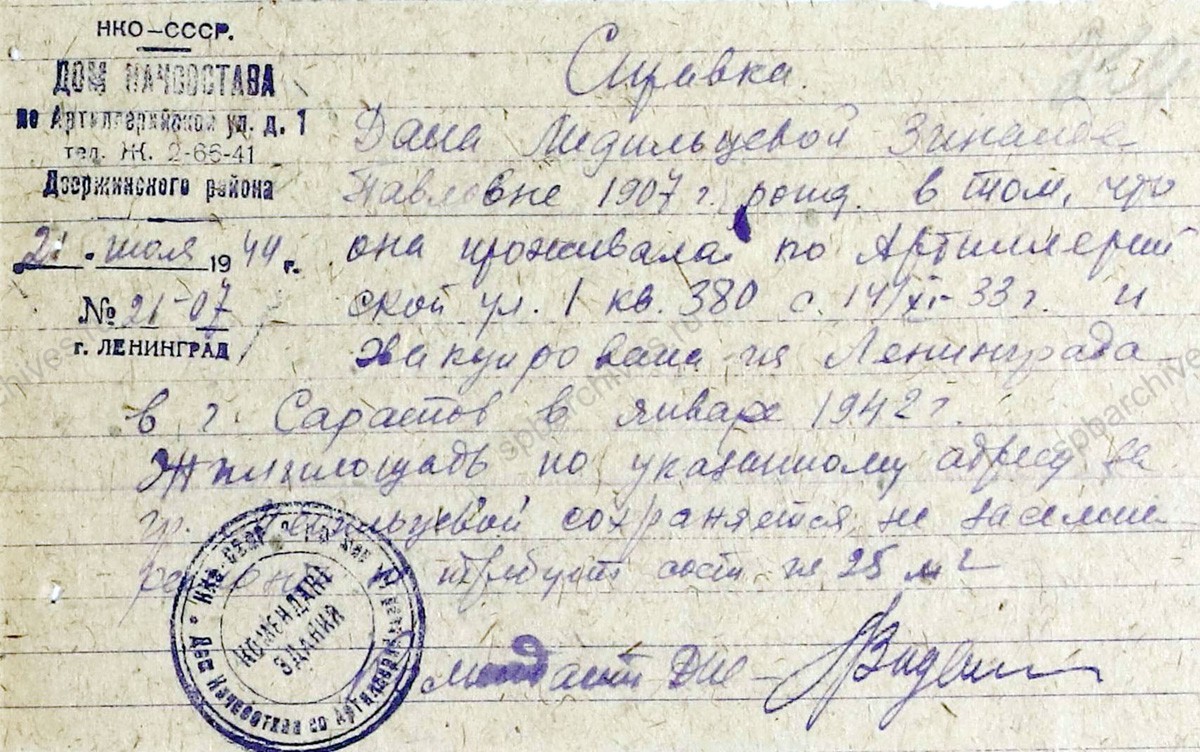 НКО–СССР.
ДОМ НАЧСОСТАВА
по Артиллерийской ул. д. 1
тел. Ж. 2-66-41
Дзержинского района
21 июля 1944 г.
№ 21-07
г. ЛЕНИНГРАД
Справка.
Дана Зинаиде
Павловне 1907 г. рожд. в том, что
она проживала по Артиллерий
ской ул. 1 кв. 380 с 14/XI-33 г. и
эвакуирована из Ленинграда
в г. Саратов в январе 1942 г.
Жилплощадь по указанному адресу за
гр. сохраняется, не заселена
25 м2
НКО СССР
КОМЕНДАНТ
ЗДАНИЯ
Дом Начсостава по Артиллерийской
ДНС
spbarchives.ru